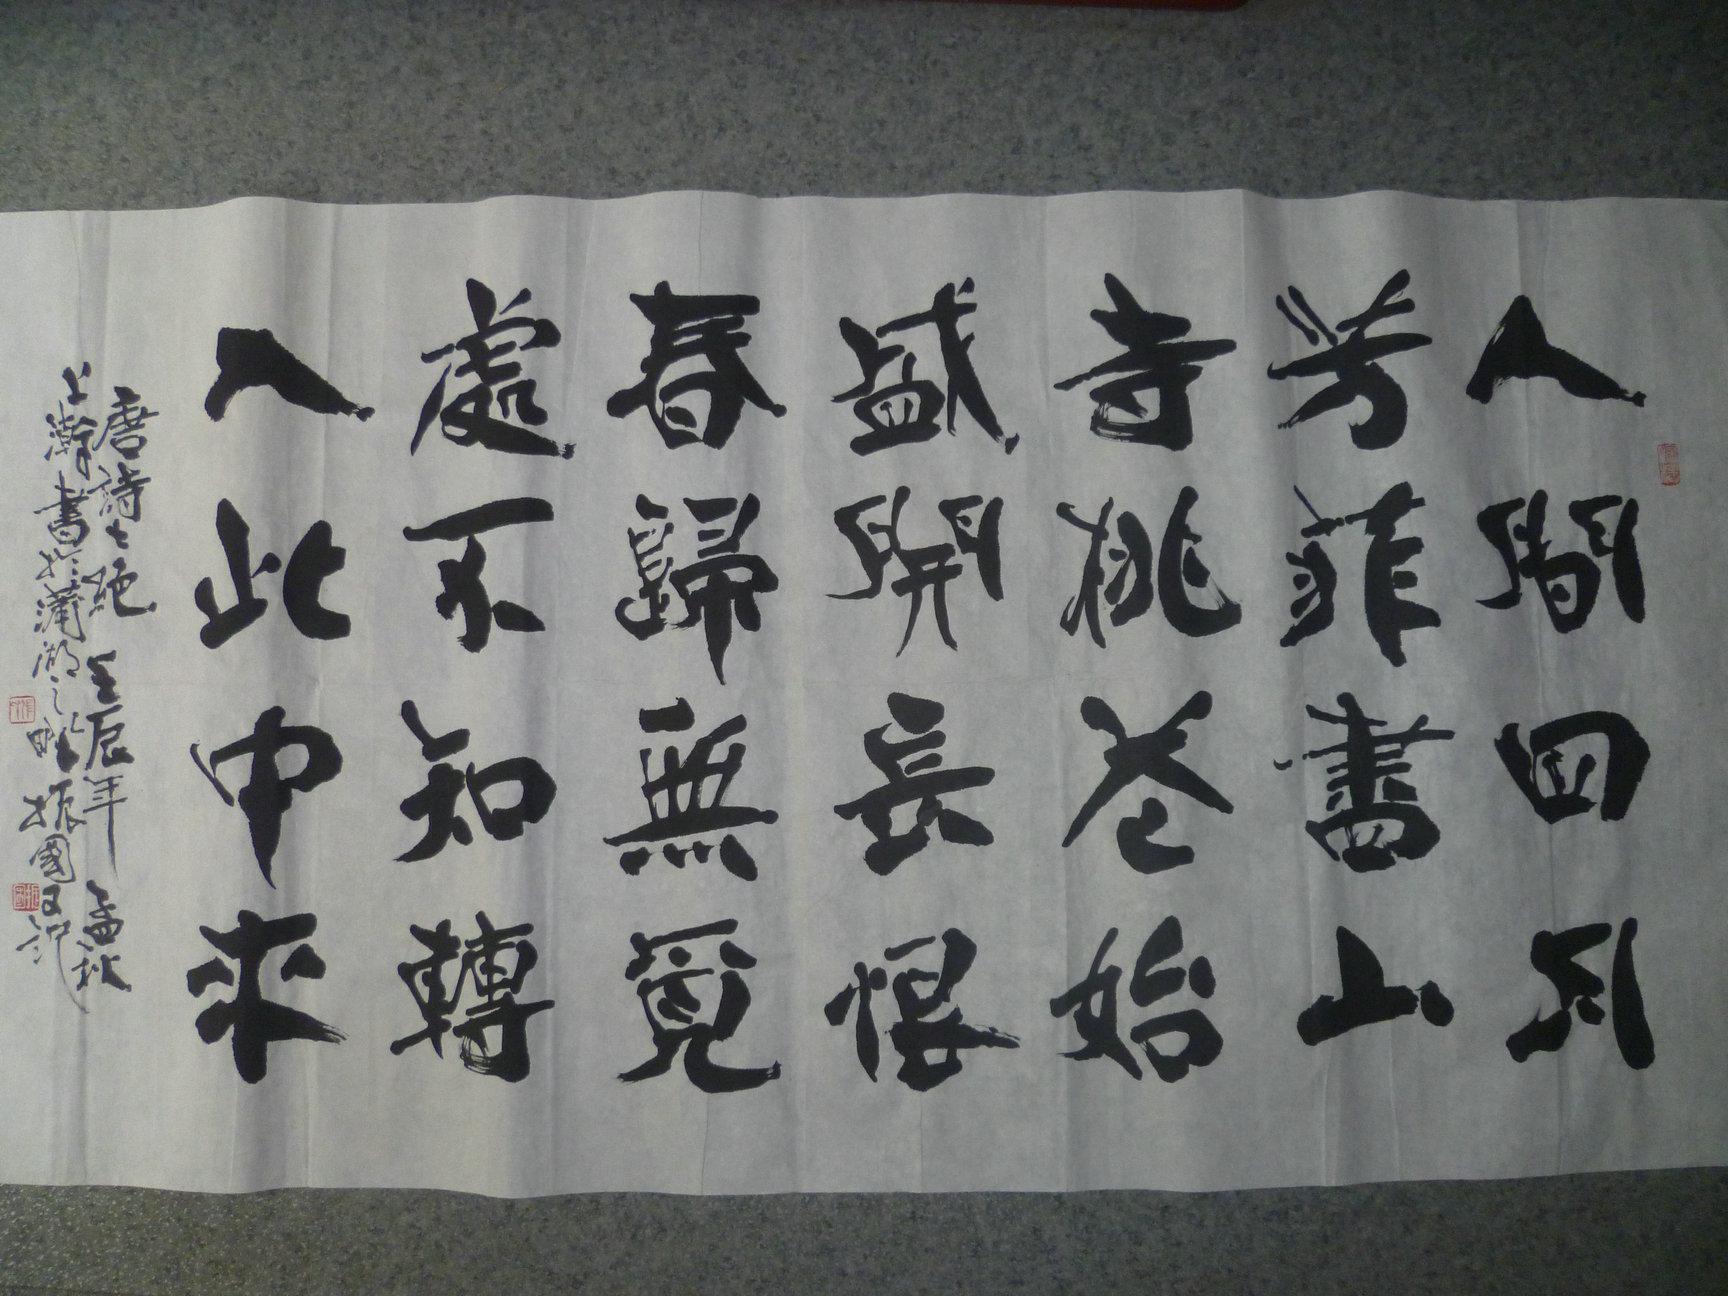 人間四月
芳菲盡山
寺桃花始
盛開長恨
春歸無覓
處不知轉
入此中來
唐詩七絕 壬辰年 孟秋
上瀚書於蒲湖之畔 振國又記